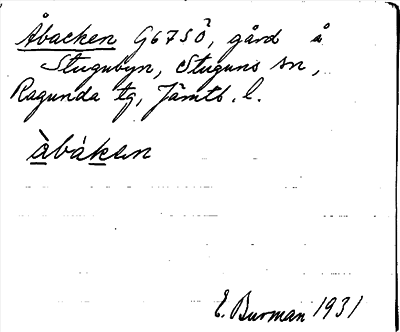 Åbacken G67SÖ, gård å
Stugubyn, Stuguns sn,
Ragunda tg, Jämtl. l.
àbáken
E. Burman 1931